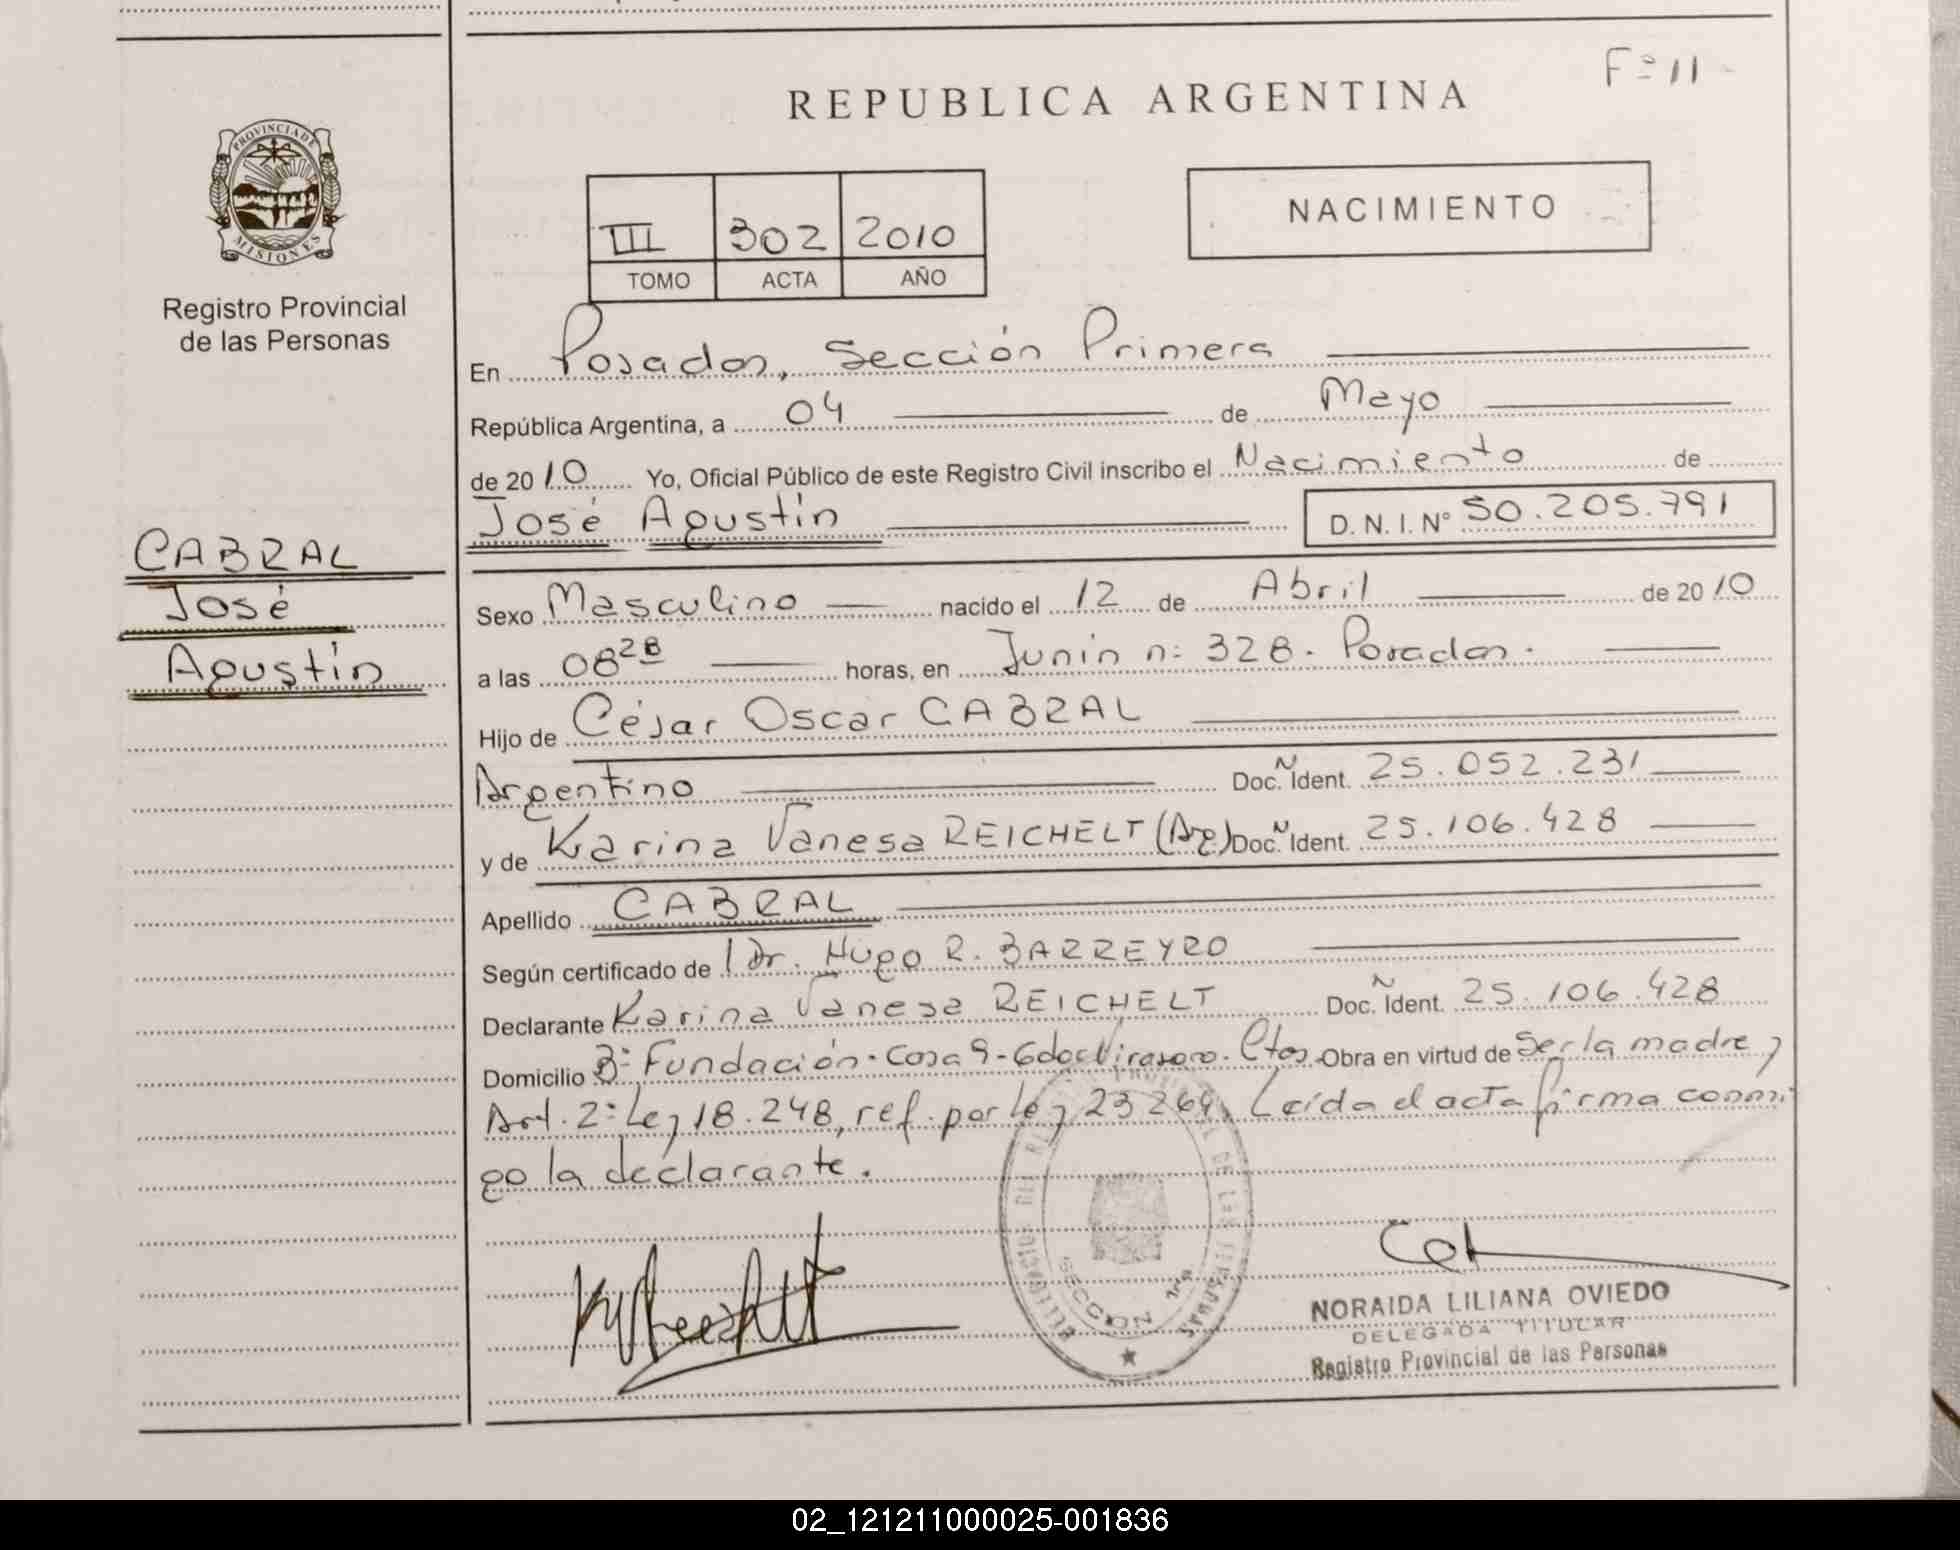 F=º 11
REPUBLICA ARGENTINA
PROVINCIA DE
MISIONES
Registro Provincial
de las Personas
III 302 2010
TOMO ACTA AÑO
NACIMIENTO
En Posadas, Sección Primera
República Argentina, a 04 de Mayo
de 2010 Yo, Oficial Público de este Registro Civil inscribo el Nacimiento de
José Agustín D. N. I. Nº 50.205.791
CABRAL
José
Agustín
Sexo Masculino nacido el 12 de Abril de 2010
a las 08 28 horas, en Junín nº 328. Posadas.
Hijo de César Oscar CABRAL
Argentino Doc. Ident. 25.052.231
y de Karina Vanesa REICHELT (Arg) Doc. Ident. 25.106.428
Apellido CABRAL
Según certificado de Dr. Hugo R. BARREYRO
Declarante Karina Vanesa REICHELT Doc. Ident. 25.106.428
Domicilio Bº Fundación. Casa 9 - Gdor Virasoro. Ctes. Obra en virtud de Ser la madre y
Art. 2º Ley 18.248, ref. por ley 23264. Leída el acta firma conmi
go la declarante.
SECCION 1ra
NORAIDA LILIANA OVIEDO
DELEGADA TITULAR
Registro Provincial de las Personas
02_121211000025-001836